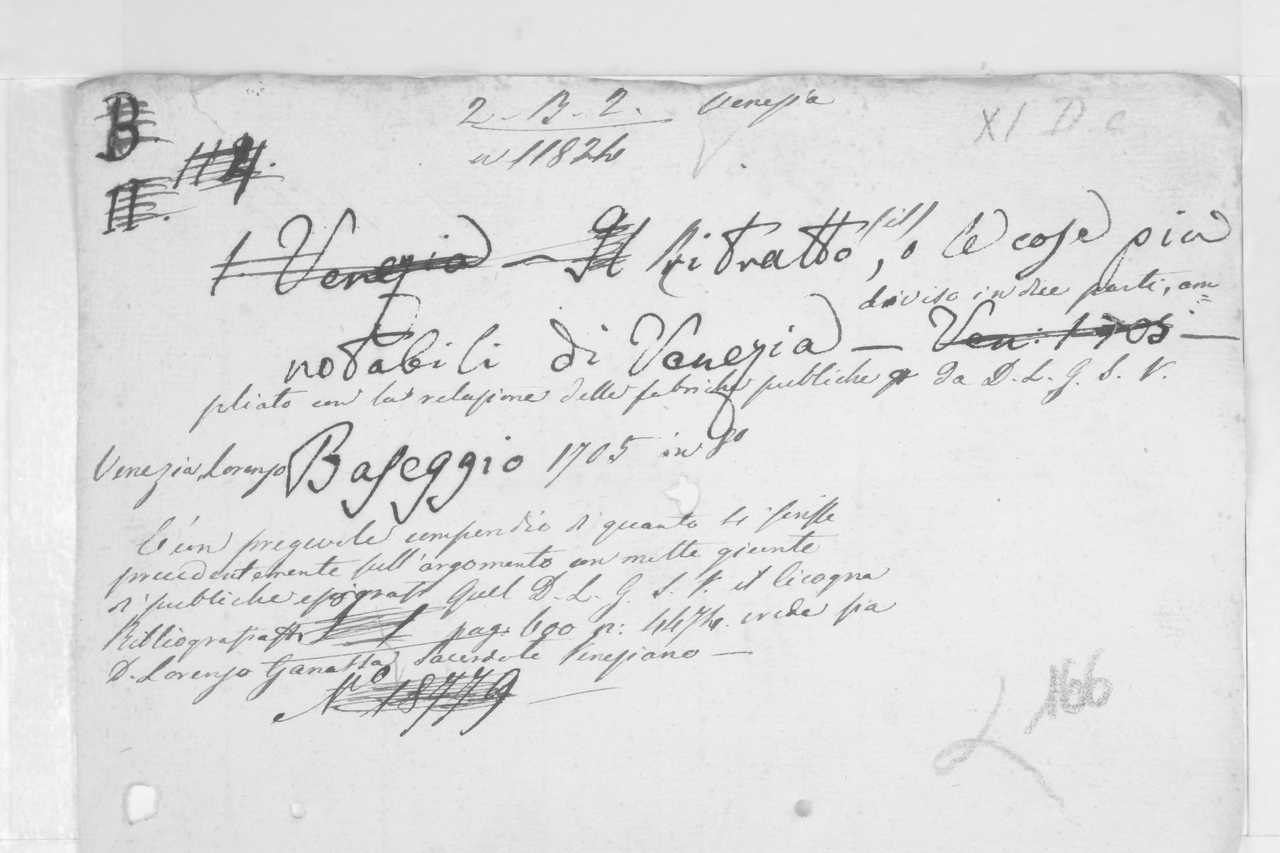 B
114.
II.
2-B-2. Venezia
n 11824
XI D c
1. Venezia — Il Ritratto, o le cose più
diviso in due parti, am=
notabili di Venezia — Ven: 1705 —
pliato con la relazione delle fabriche publiche da D. L. G. S. V.
Venezia, Lorenzo Baseggio 1705 in 8o
È un pregevole compendio di quanto si scrisse
precedentemente sull'argomento con molte giunte
di publiche epigrafi. Quel D. L. G. S. V. il Cicogna
Bibliografia pag. 600 n: 4474. crede sia
D. Lorenzo Ganassa Sacerdote Veneziano —
No 18779
166